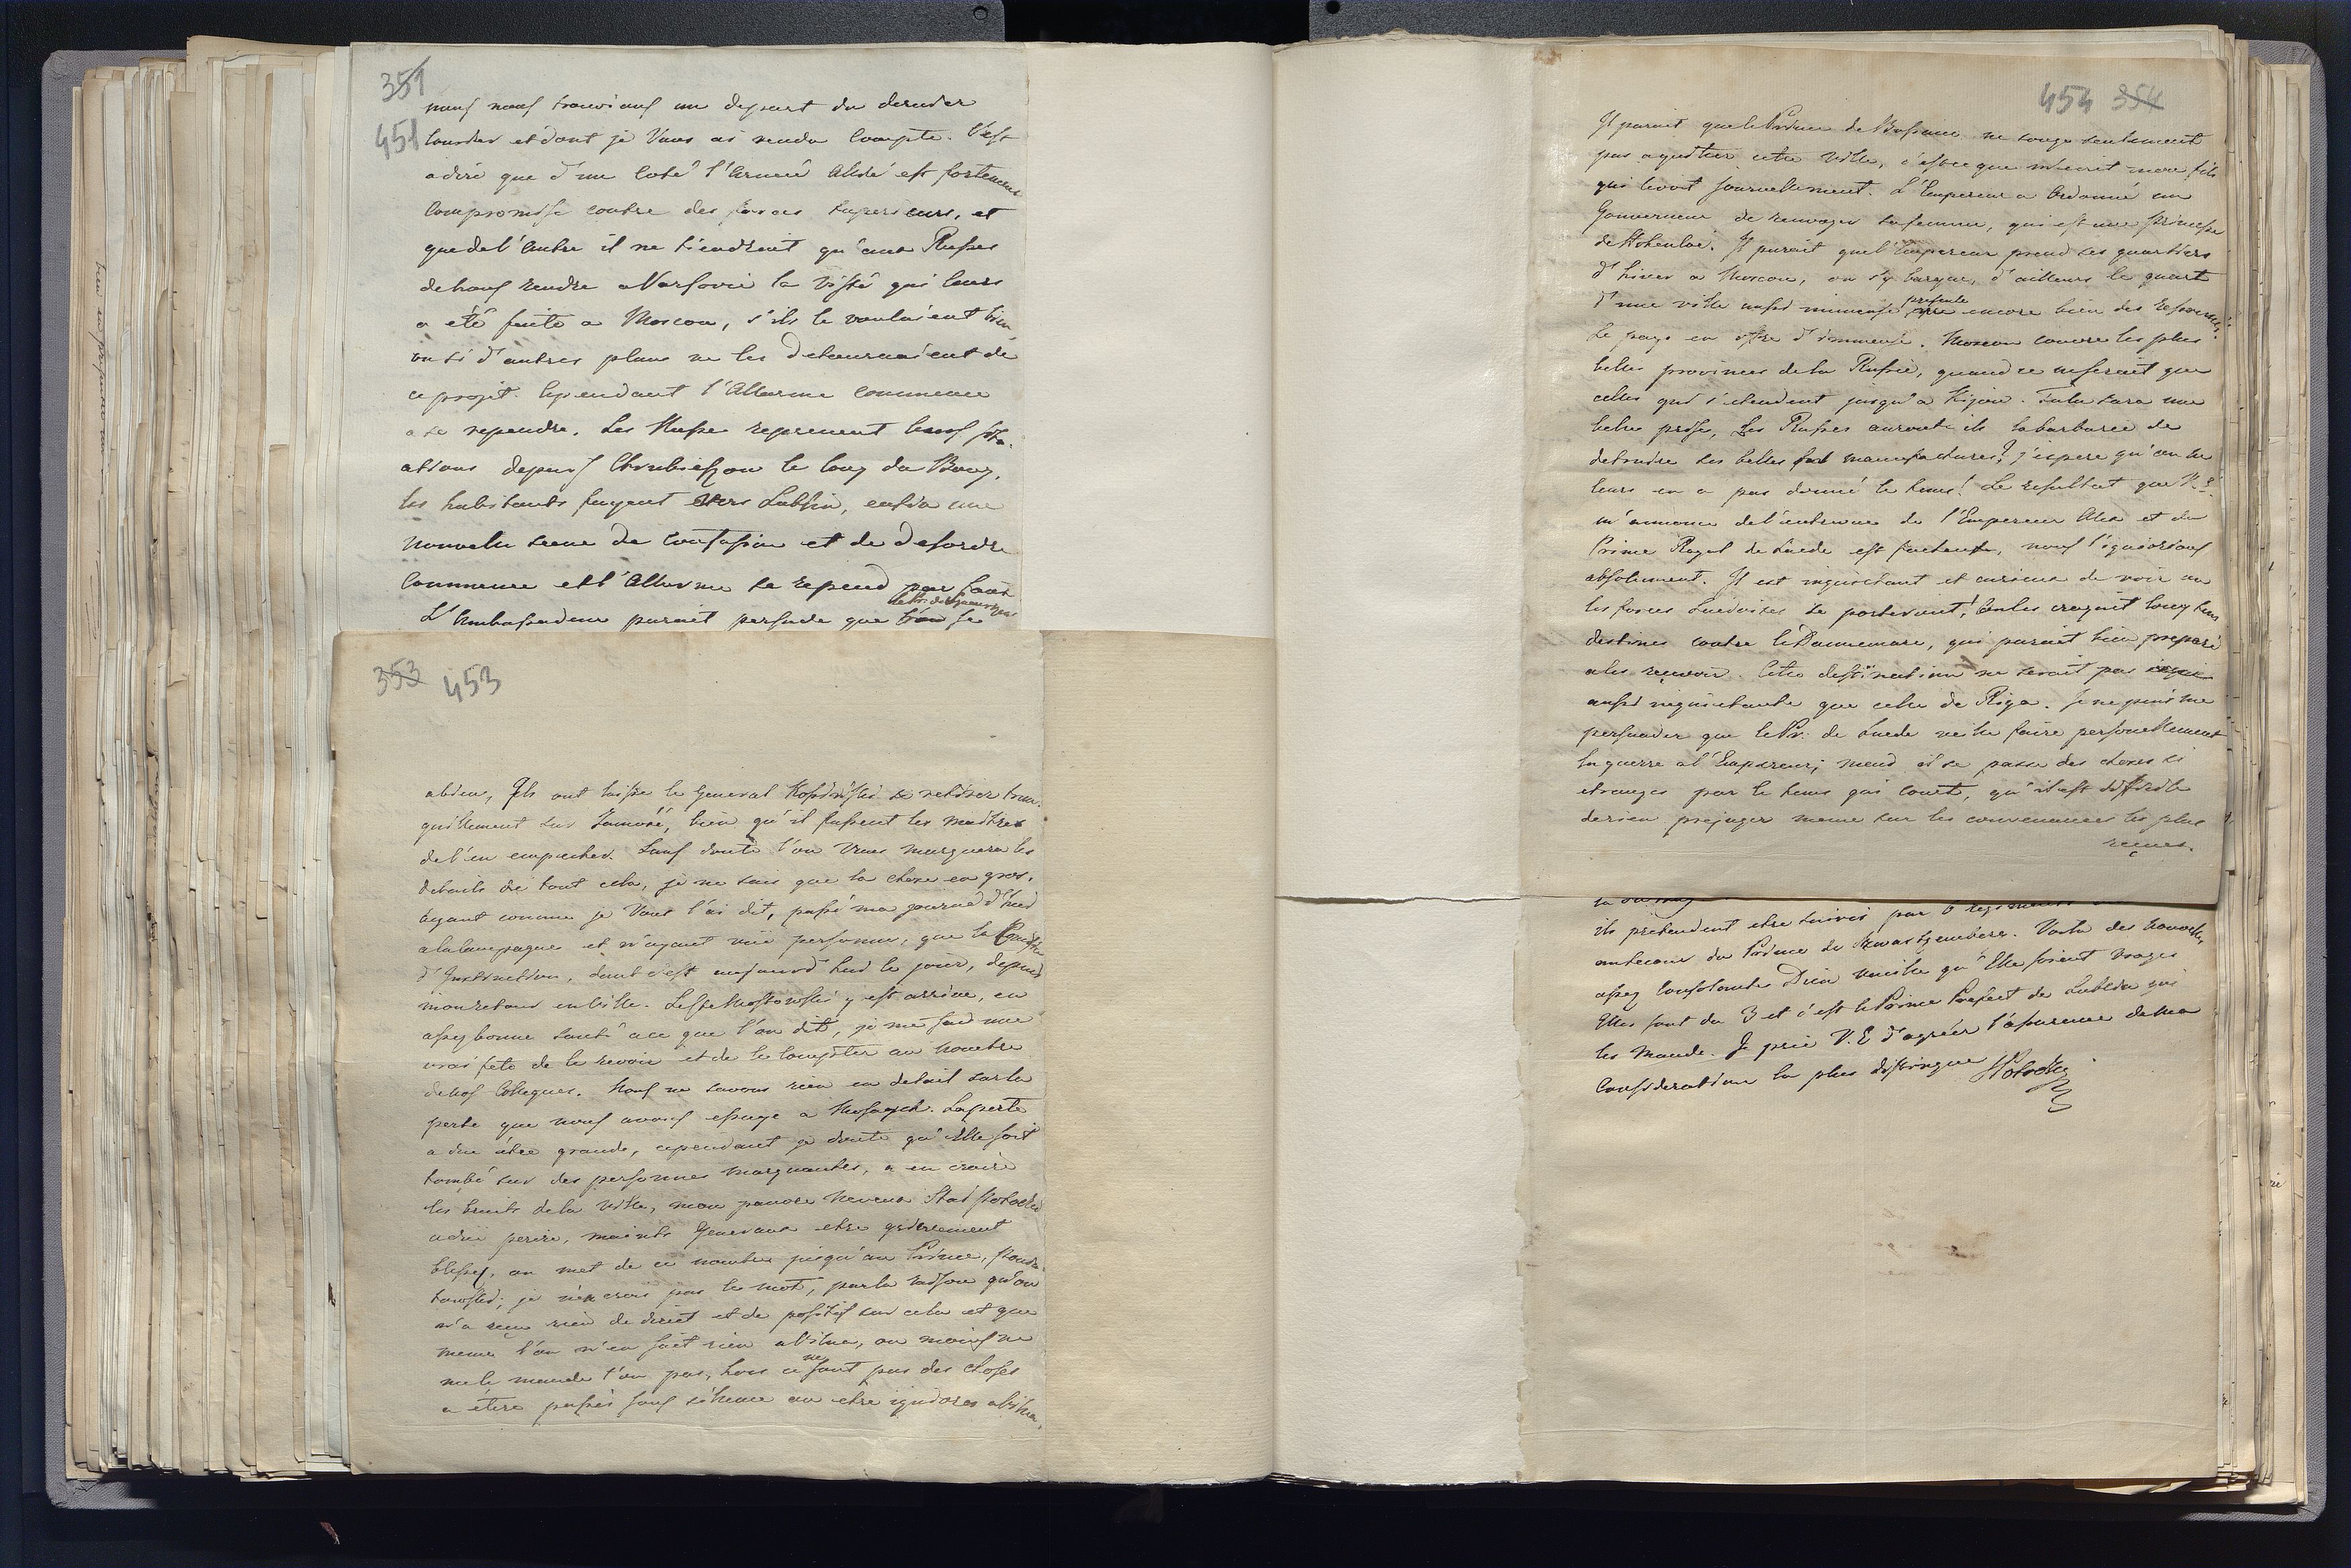 351
451
nous nous trouvions au depart du dernier
Courier et dont je Vous ai rendu Compte. C'est
a dire que d'un Coté l'Armée Alliée est fortement
Compromise contre des forces superieurs, et
que de l'autre il ne tiendroit qu'aux Russes
de nous rendre a Varsovie la visite qui leurs
a été faite a Moscou, s'ils le vouloient bien
ou si d'autres plans ne les detournoient de
ce projet. Cependant l'Allarme commence
a se repandre. Les Russe reprennent leurs
depuis le long du Boug,
les habitants fuyent vers Lublin, enfin une
nouvelle scene de confusion et de desordre
Commence et l'Allarme se repend par tout
L'Ambassadeur parait persuade que l'on se
353 453
abien, Ils ont laissé le General Kosinski se retirer tran-
quillement sur Zamosć, bien qu'il fussent les maitres
de l'en empecher. Sans doute l'on Vous marquera les
details de tout cela, je ne sais que la chose en gros,
ayant comme je Vous l'ai dit, passé ma journé d'hier
a la campagne et n'ayant vue personne, que la
d'Instruction, dont c'est aujourd'hui le jour, depuis
mon retour en ville. y est arrivé, en
assez bonne santé a ce que l'on dit, je me fais une
vrai fete de le revoir et de le compter au nombre
de nos Collegues. Nous ne savons rien en detail sur la
perte que nous avons essuye a Mosaysk. La perte
a due être grande, cependant je doute qu'elle soit
tombé sur des personnes marquantes, a en croire
les bruits de la ville, mon pauvre neveux Stas Potocki
a due perire, maints Generaux etre grievement
blessez, on met de ce nombre jusqu'au Prince, Ponia-
towski; je n'en crois pas le mot, par la raison qu'on
n'a reçu rien de direct et de positif sur cela et que
meme l'on n'en sait rien a Vilna, ou moins ne
me le mande l'on pas, hors ce ne sont pas des choses
a être passés sous silence ou etre ignorés a Vilna.
454 354
Il parait que le Prince de Bassano ne songe seulement
pas a quitter cette ville, c'est ce que m'ecrit mon fils
qui le voit journellement. L'Empereur a ordonné au
Gouverneur de renvoyer sa femme, qui est une princesse
de Hohenloe. Il parait que l'Empereur prend ses quartiers
d'hiver a Moscou, d'ailleurs le quart
d'une ville aussi immense presente encore bien des resources,
Le pays en offre d'immense. Moscou couvre les plus
belles provinces de la Russie, quand ce ne serait que
celles qui s'etendent jusqu'a Kijow. Tula sera une
belle prise, Les Russes auront ils la barbarie de
detruire ses belles manufactures? j'espere qu'on ne
leurs en a pas donné le tems! Le resultat que V. E.
m'annonce de l'entrevue de l'Empereur Alex et du
Prince Royal de Suede est facheux, nous l'ignorions
absolument. Il est inquietant et curieux de voir ou
les forces Suedoises se porteraient! On les croyait long tems
destinés contre le Dannemarc, qui parait bien preparé
a les recevoir. Cette destination ne serait pas
aussi inquietante que celle de Riga. Je ne puis me
persuader que le Pr: de Suede veille faire personellement
la guerre a l'Empereur; mais il se passe des choses si
etranges par le tems qui court, qu'il est difficile
de rien prejuger meme sur les convenances les plus
reçues.
ils pretendent etre suivis par 6
au secour du Prince de Szwartzemberg. Voila des nouvelles
assez Consolantes Dieu veuille qu'Elle soient vrayes
Elles sont du 3 et c'est le Prince Prefect de Lublin qui
les Mande. Je prie V. E d'agréer l'assurance de ma
Consideration la plus distingue SPotocki